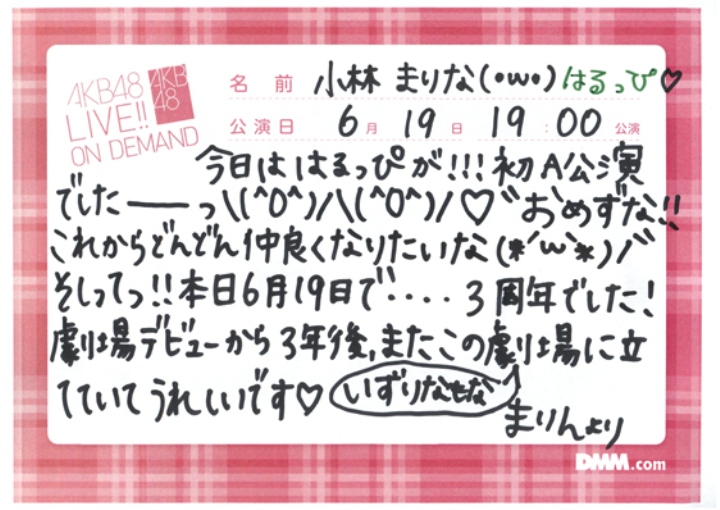 AKB48
LIVE!!
ON DEMAND
AKB
48
名前 小林 まりな(・ω・)はるっぴ♡
公演日 6月19日 19:00公演
今日ははるっぴが!!!初A公演
でしたーーっ\(^O^)/\(^O^)/♡おめずな!!
これからどんどん仲良くなりたいな(*´ω`*)/
そしてっ!!本日6月19日で‥‥3周年でした!
劇場デビューから3年後、またこの劇場に立
てていてうれしいです♡
まりんより
DMM.com